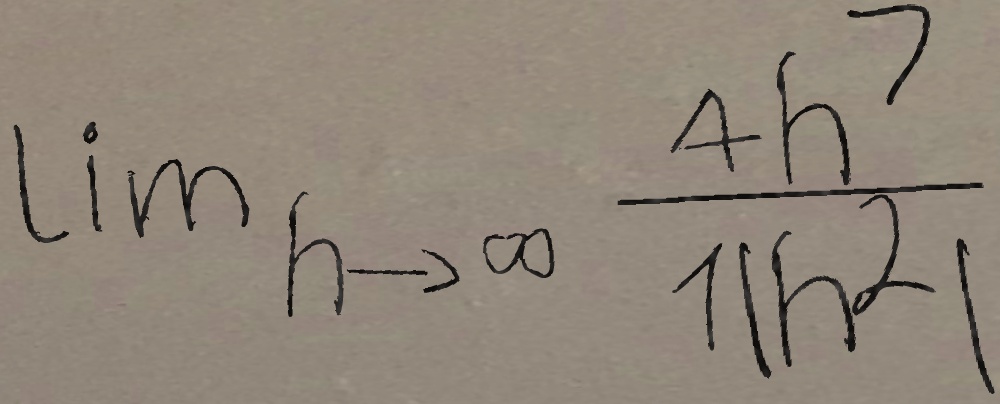 $\lim_{h \to \infty} \frac{4h^7}{1|h^2|}$